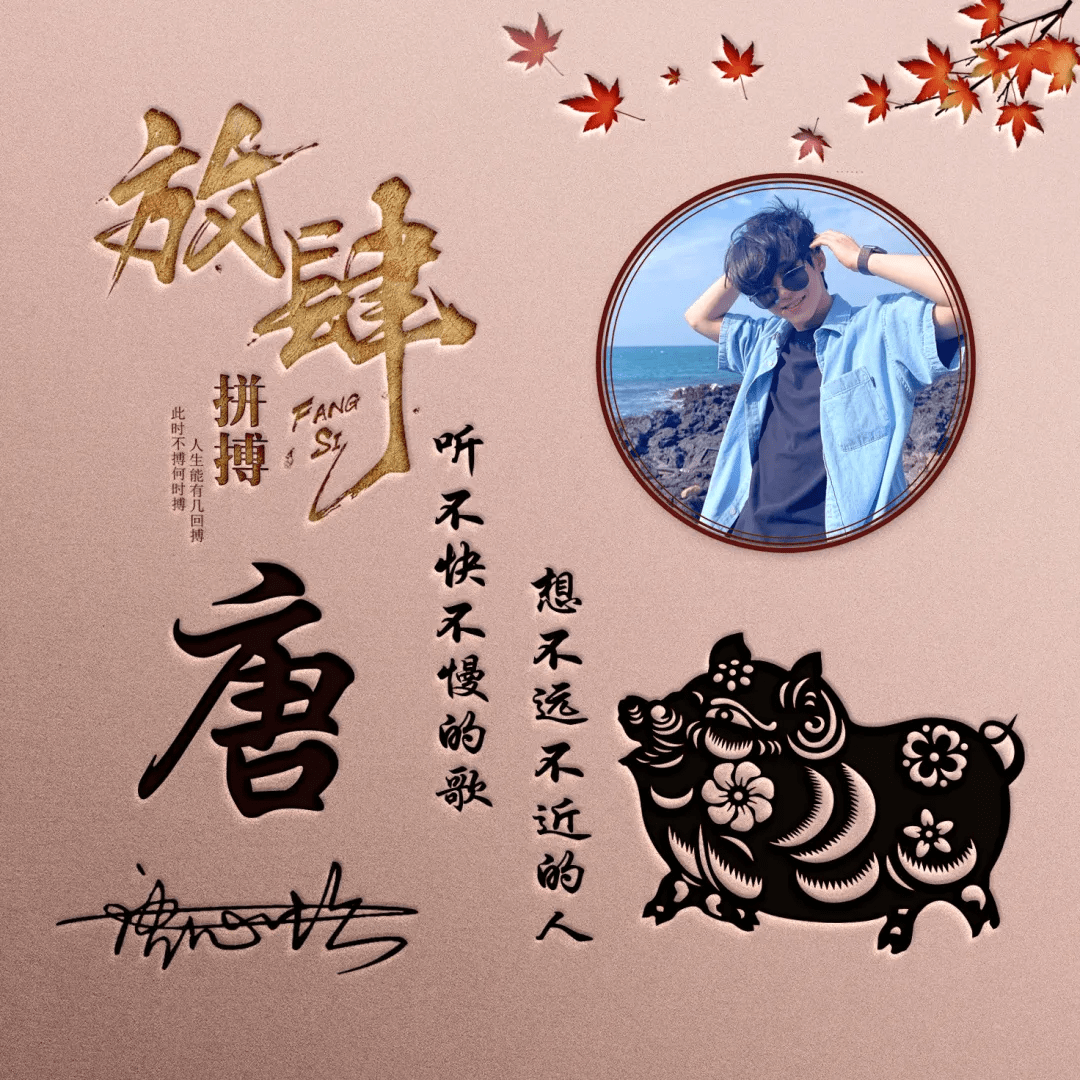 放肆
FANG
SI
拼搏
人生能有几回搏
此时不搏何时搏
听不快不慢的歌
想不远不近的人
唐